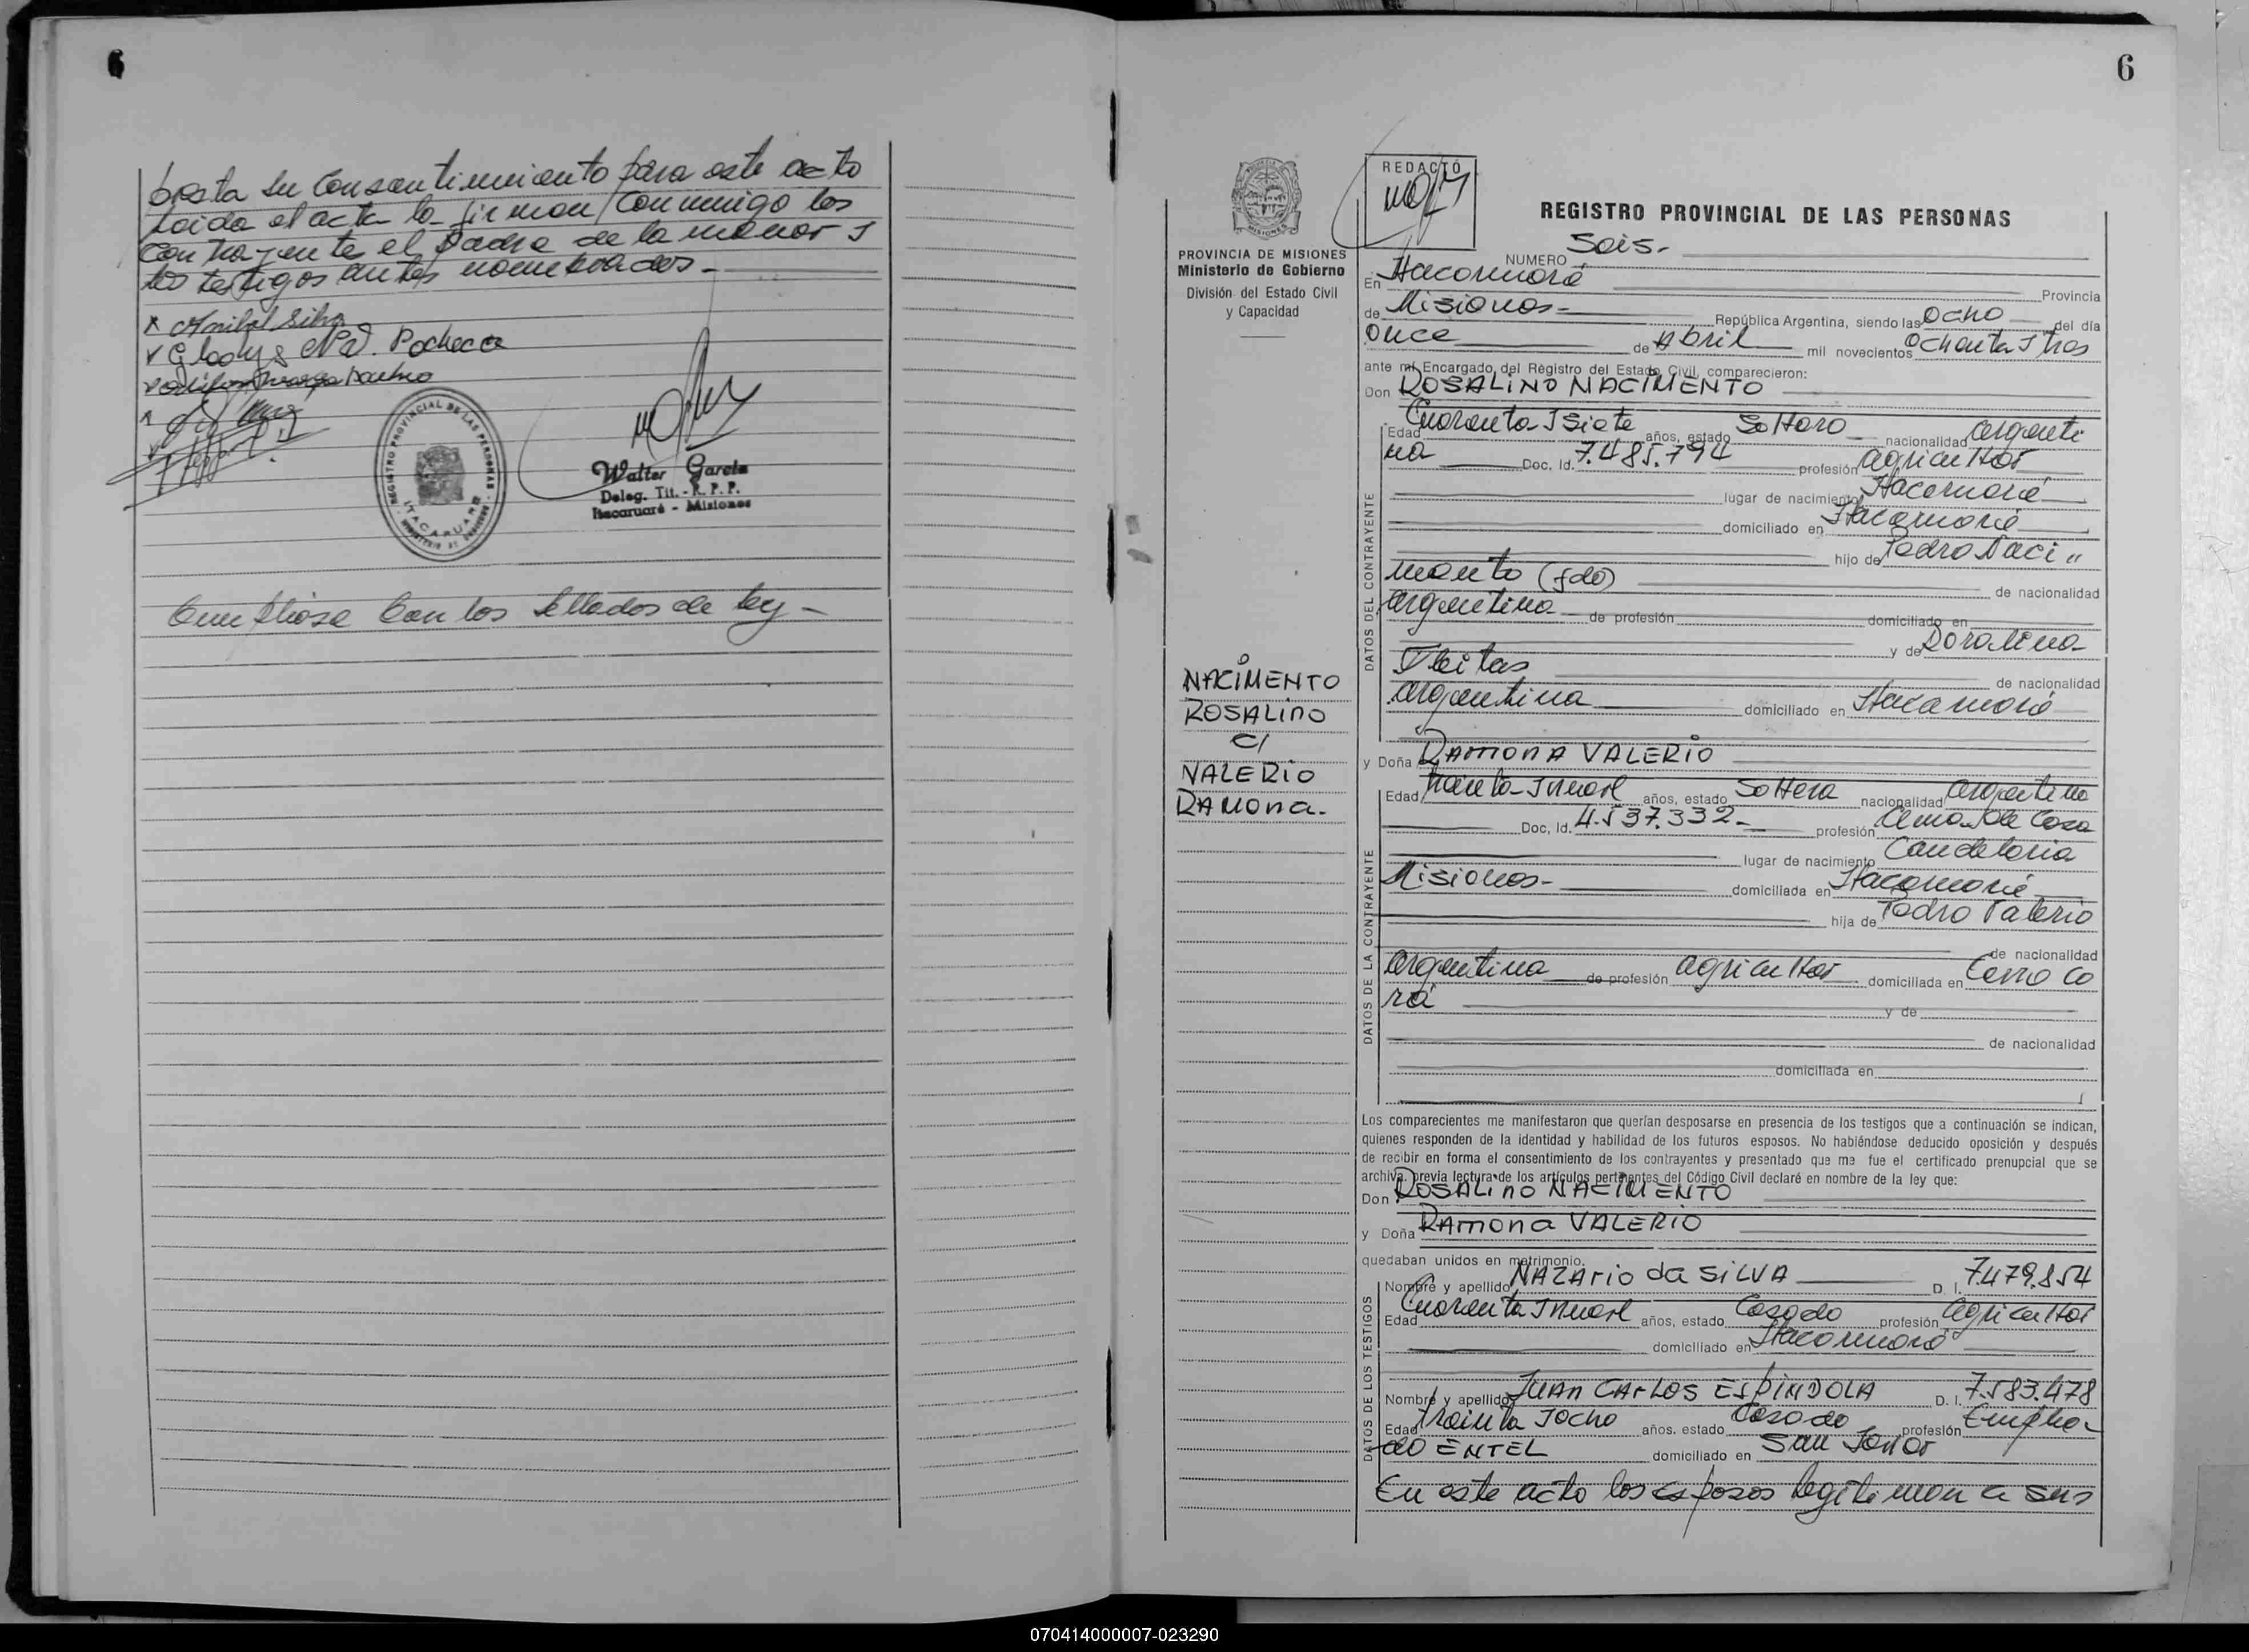 6
presta su Consentimiento para este acto
Leida el acta la firman Conmigo los
Contrayentes el Padre de la menor y
los testigos antes nombrados.-
x Anibal Silva
v Gladys Pacheco
REGISTRO PROVINCIAL DE LAS PERSONAS
ITACARUARE
Walter Garcia
Deleg. Tit. - R. P. P.
Itacaruaré - Misiones
Cumpliose Con los Sellados de ley -
6
REDACTÓ
PROVINCIA DE MISIONES
Ministerio de Gobierno
División del Estado Civil
y Capacidad
REGISTRO PROVINCIAL DE LAS PERSONAS
NUMERO Seis.-
En Itacaruaré Provincia
de Misiones- República Argentina, siendo las Ocho del día
Once de Abril mil novecientos Ochenta y tres
ante mí Encargado del Registro del Estado Civil, comparecieron:
Don ROSALINO NACIMENTO
Edad Cuarenta y Siete años, estado Soltero nacionalidad argenti
na Doc. Id. 7.485.794 profesión agricultor
lugar de nacimiento Itacaruaré
domiciliado en Itacaruaré
hijo de Pedro Naci"
mento (fdo) de nacionalidad
argentina de profesión domiciliado en
y de Doralina
Fleitas de nacionalidad
argentina domiciliado en Itacaruaré
DATOS DEL CONTRAYENTE
NACIMENTO
ROSALINO
C/
VALERIO
RAMONA.
y Doña RAMONA VALERIO
Edad treinta y nueve años, estado Soltera nacionalidad argentina
Doc. Id. 4.537.332- profesión Ama de Casa
lugar de nacimiento Candelaria
Misiones- domiciliada en Itacaruaré
hija de Pedro Valerio
de nacionalidad
argentina de profesión agricultor domiciliada en Cerro Co
rá y de
de nacionalidad
domiciliada en
DATOS DE LA CONTRAYENTE
Los comparecientes me manifestaron que querían desposarse en presencia de los testigos que a continuación se indican,
quienes responden de la identidad y habilidad de los futuros esposos. No habiéndose deducido oposición y después
de recibir en forma el consentimiento de los contrayentes y presentado que me fue el certificado prenupcial que se
archiva, previa lectura de los artículos pertinentes del Código Civil declaré en nombre de la ley que:
Don ROSALINO NACIMENTO
y Doña RAMONA VALERIO
quedaban unidos en matrimonio.
Nombre y apellido NAZARIO da SILVA D. I. 7.479.854
Edad Cuarenta y nueve años, estado Casado profesión agricultor
domiciliado en Itacaruaré
Nombre y apellido JUAN CARLOS ESPINDOLA D. I. 7.583.478
Edad treinta y ocho años, estado Casado profesión Emplea
do ENTEL domiciliado en San Javier
DATOS DE LOS TESTIGOS
En este acto los esposos legitiman a sus
070414000007-023290